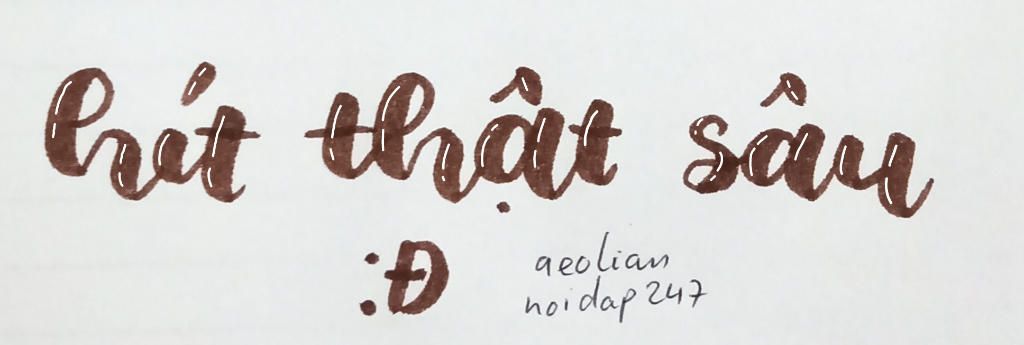 hít thật sâu
:Đ
aeolian
hoidap247